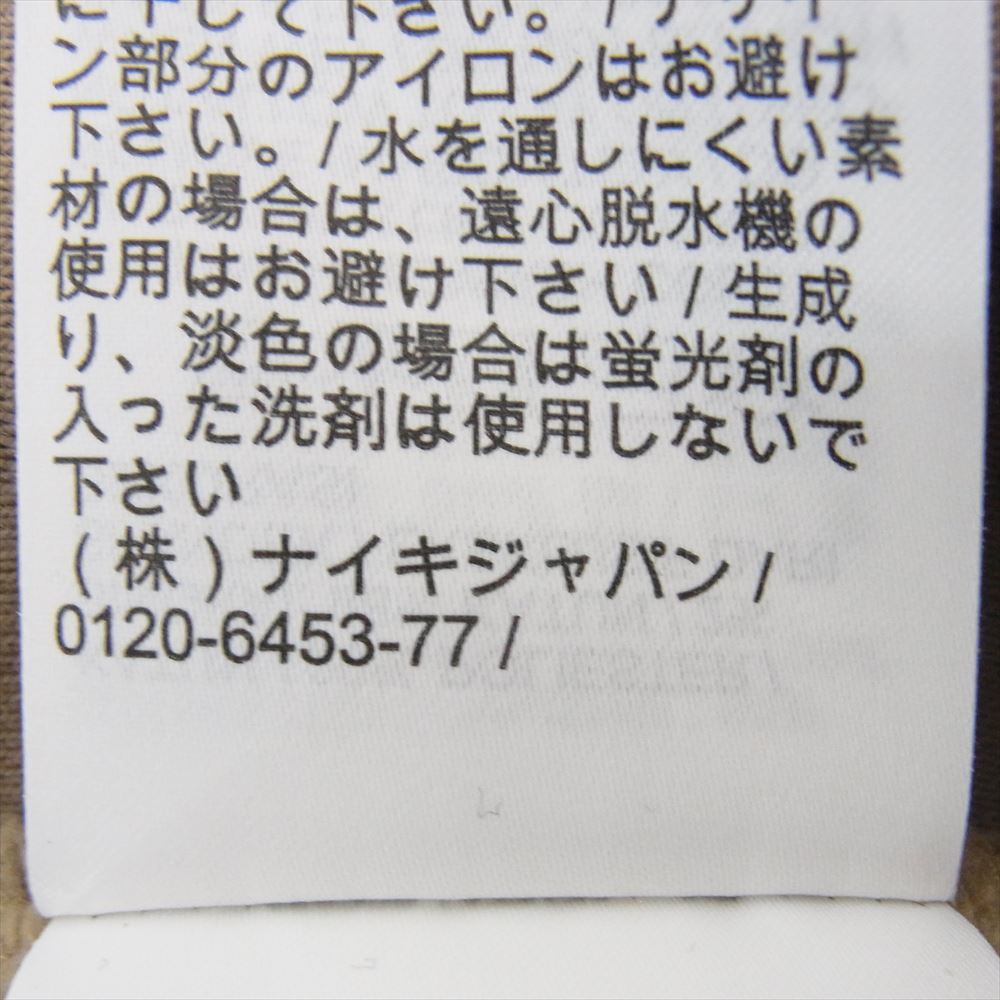 に干して下さい。/デザイ
ン部分のアイロンはお避け
下さい。/水を通しにくい素
材の場合は、遠心脱水機の
使用はお避け下さい/生成
り、淡色の場合は蛍光剤の
入った洗剤は使用しないで
下さい
(株)ナイキジャパン/
0120-6453-77/